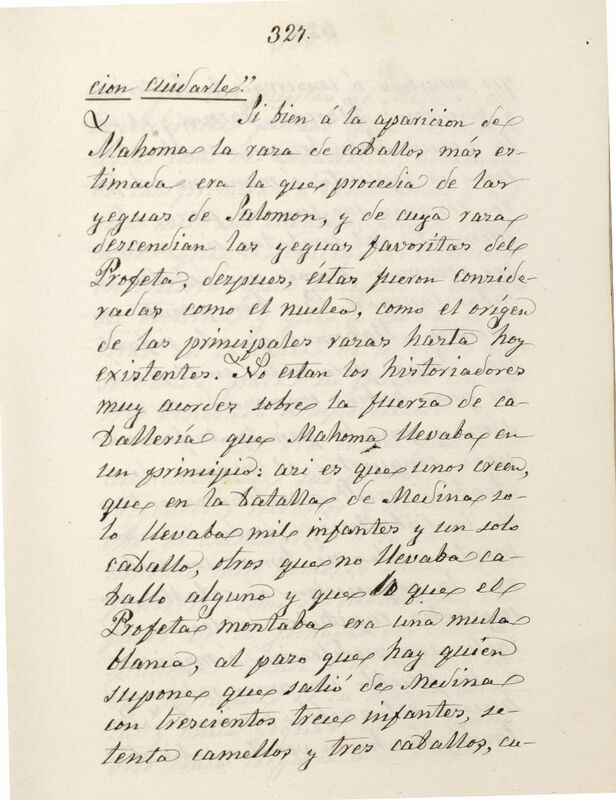 327.
cion cuidarle."
Si bien á la aparicion de
Mahoma la raza de caballos más es-
timada era la que procedia de las
yeguas de Salomon, y de cuya raza
descendian las yeguas favoritas del
Profeta, despues, éstas fueron conside-
radas como el nucleo, como el orígen
de las principales razas hasta hoy
existentes. No estan los historiadores
muy acordes sobre la fuerza de ca-
ballería que Mahoma llevaba en
un principio: asi es que unos creen,
que en la batalla de Medina so-
lo llevaba mil infantes y un solo
caballo, otros que no llevaba ca-
ballo alguno y que lo que el
Profeta montaba era una mula
blanca, al paso que hay quien
supone que salió de Medina
con trescientos trece infantes, se-
tenta camellos y tres caballos, cu-